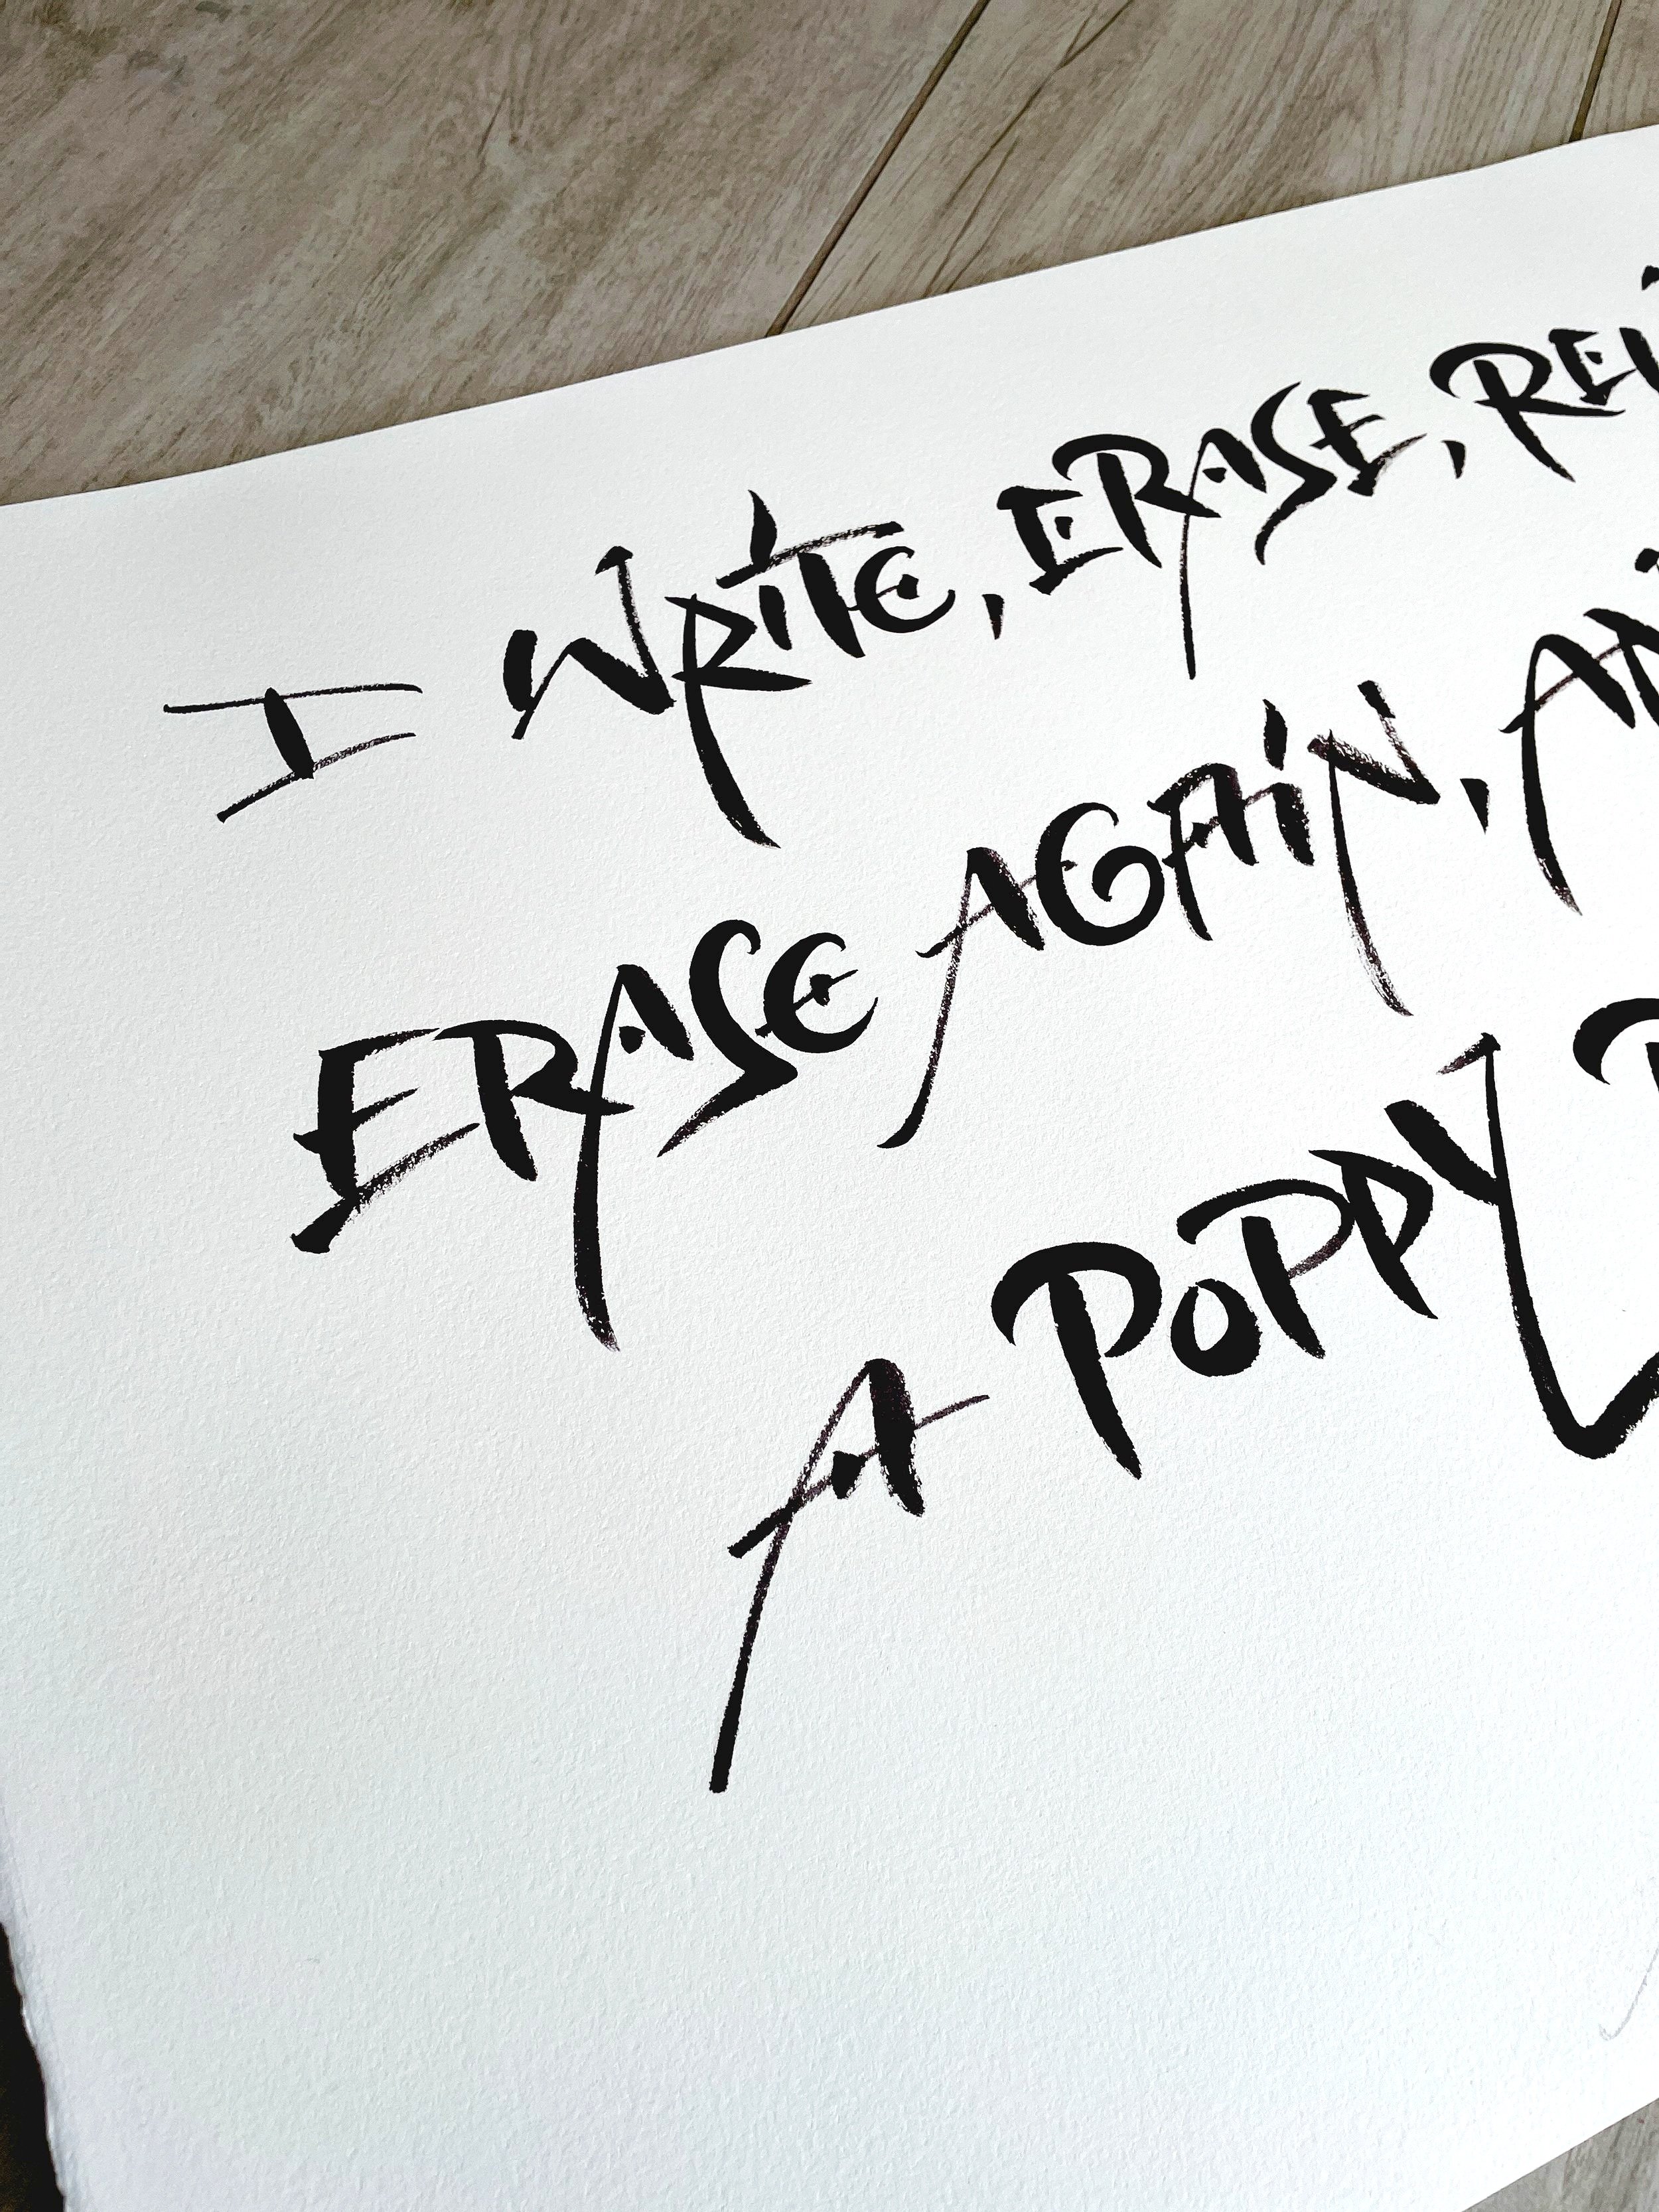 I WRITE, ERASE, RE
ERASE AGAIN, A
A POPPY